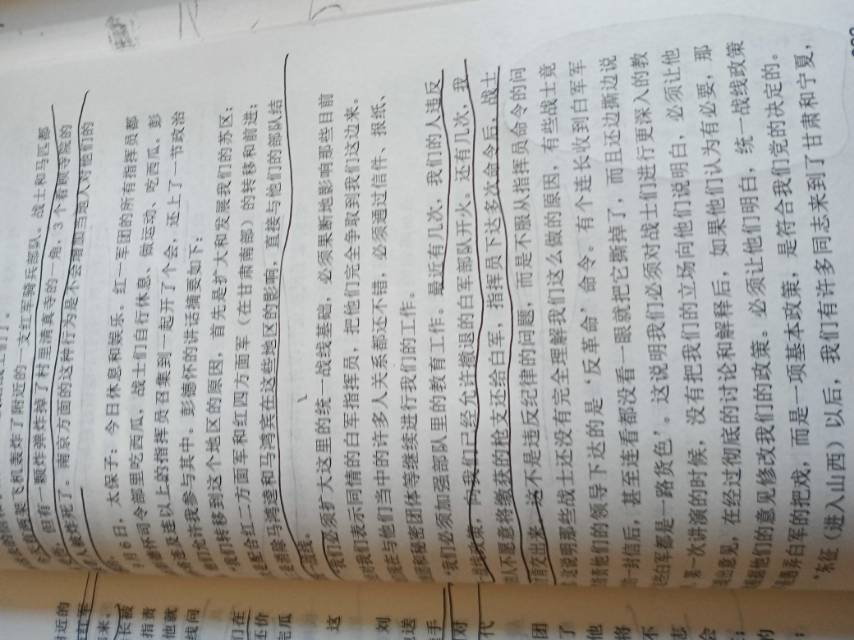 有两架飞机轰炸了附近的一支红军骑兵部队。战士和马匹都
但有一颗炸弹炸掉了村里清真寺的一角，3个看顾寺院的
人被炸死了。南京方面的这种行为是不会增加当地人对他们的
月6日，太保子：今日休息和娱乐，红一军团的所有指挥员都
司令部里吃西瓜，战士们自行休息、做运动、吃西瓜。彭
连及连以上的指挥员召集到一起开了个会，还上了一节政治
们允许我参与其中。彭德怀的讲话摘要如下：
我们转移到这个地区的原因，首先是扩大和发展我们的苏区；
是配合红二方面军和红四方面军（在甘肃南部）的转移和前进；
清除马鸿逵和马鸿宾在这些地区的影响，直接与他们的部队结
一战线。
我们必须扩大这里的统一战线基础，必须果断地影响那些目前
我们表示同情的白军指挥员，把他们完全争取到我们这边来。
现在与他们当中的许多人关系都还不错，必须通过信件、报纸、
和秘密团体等继续进行我们的工作。
我们必须加强部队里的教育工作。最近有几次，我们的人违反
战线政策，向我们已经允许撤退的白军部队开火，还有几次，我
人不愿意将缴获的枪支还给白军，指挥员下达多次命令后，战士
才肯交出来。这不是违反纪律的问题，而是不服从指挥员命令的问
这说明那些战士还没有完全理解我们这么做的原因，有些战士竟
他们的领导下达的是‘反革命’命令。有个连长收到白军军
一封信后，甚至连看都没看一眼就把它撕掉了，而且还边撕边说
白军都是一路货色’。这说明我们必须对战士们进行更深入的教
第一次讲演的时候，没有把我们的立场向他们说明白，必须让他
提出意见，在经过彻底的讨论和解释后，如果他们认为有必要，那
他们的意见修改我们的政策。必须让他们明白，统一战线政策
愚弄白军的把戏，而是一项基本政策，是符合我们党的决定的。
‘东征（进入山西）以后，我们有许多同志来到了甘肃和宁夏，